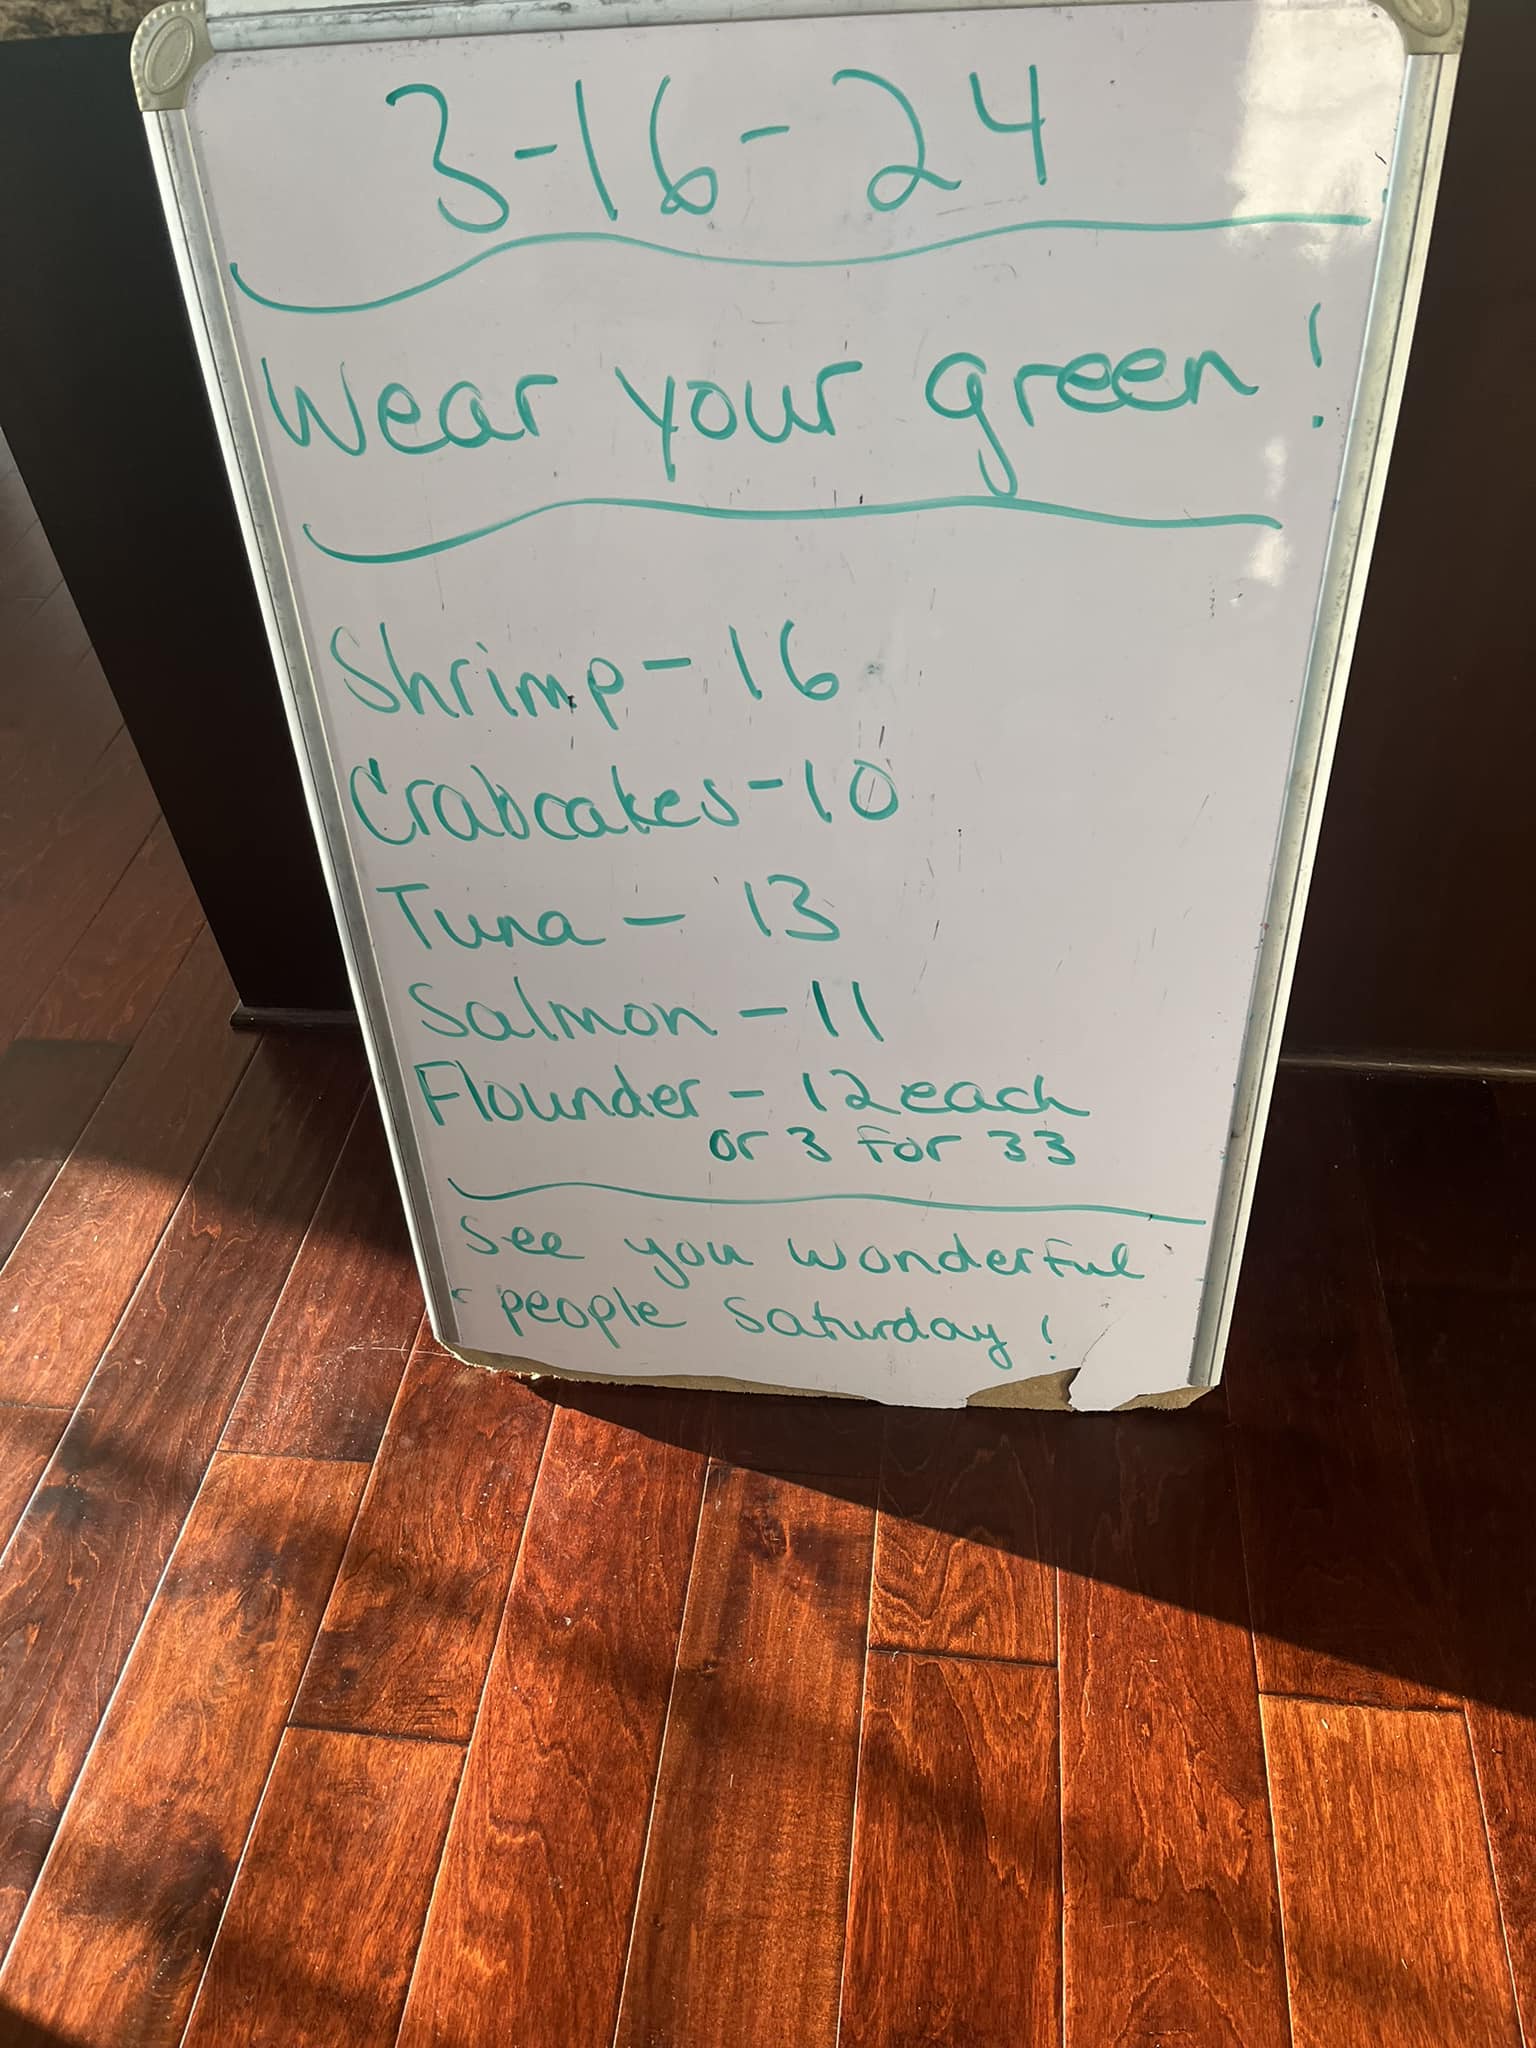 3-16-24
Wear your green!
Shrimp - 16
Crabcakes - 10
Tuna - 13
Salmon - 11
Flounder - 12 each
or 3 for 33
See you wonderful
people Saturday!